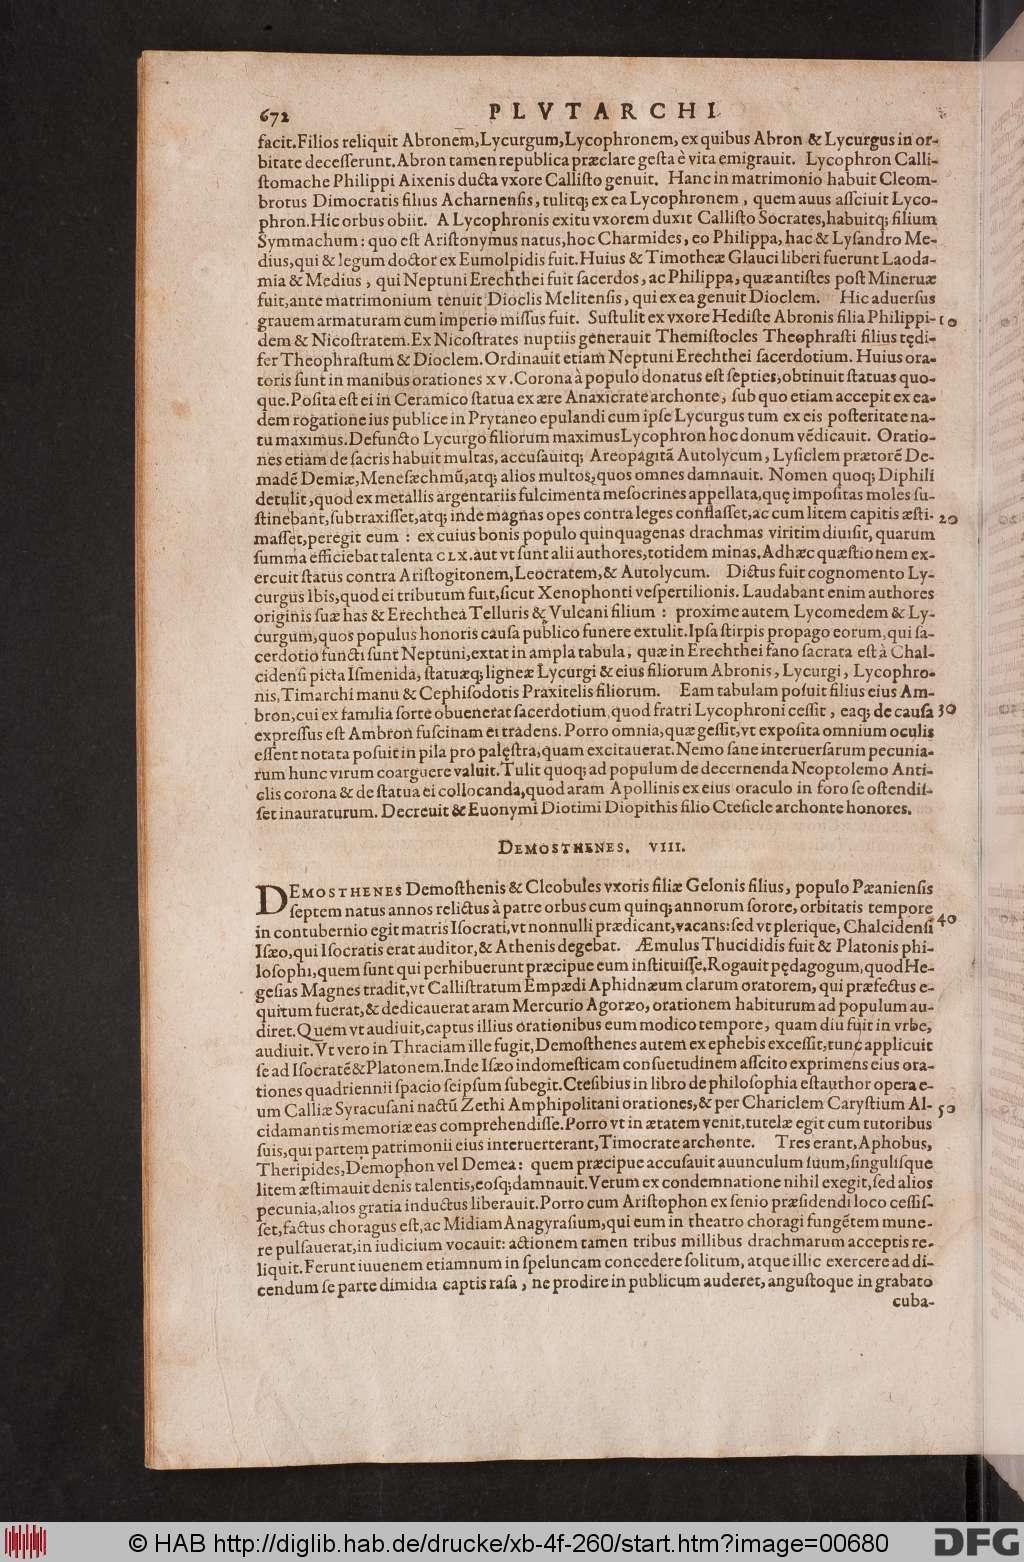 672 PLVTARCHI
facit. Filios reliquit Abronem, Lycurgum, Lycophronem, ex quibus Abron & Lycurgus in or-
bitate decesserunt. Abron tamen republica præclare gesta è vita emigrauit. Lycophron Calli-
stomache Philippi Aixenis ducta vxore Callisto genuit. Hanc in matrimonio habuit Cleom-
brotus Dimocratis filius Acharnensis, tulitq; ex ea Lycophronem, quem auus asciuit Lyco-
phron. Hic orbus obiit. A Lycophronis exitu vxorem duxit Callisto Socrates, habuitq; filium
Symmachum: quo est Aristonymus natus, hoc Charmides, eo Philippa, hac & Lysandro Me-
dius, qui & legum doctor ex Eumolpidis fuit. Huius & Timotheæ Glauci liberi fuerunt Laoda-
mia & Medius, qui Neptuni Erechthei fuit sacerdos, ac Philippa, quæ antistes post Mineruæ
fuit, ante matrimonium tenuit Dioclis Melitensis, qui ex ea genuit Dioclem. Hic aduersus
grauem armaturam cum imperio missus fuit. Sustulit ex vxore Hediste Abronis filia Philippi- 10
dem & Nicostratem. Ex Nicostrates nuptiis generauit Themistocles Theophrasti filius tędi-
fer Theophrastum & Dioclem. Ordinauit etiam Neptuni Erechthei sacerdotium. Huius ora-
toris sunt in manibus orationes XV. Corona à populo donatus est septies, obtinuit statuas quo-
que. Posita est ei in Ceramico statua ex ære Anaxicrate archonte, sub quo etiam accepit ex ea-
dem rogatione ius publice in Prytaneo epulandi cum ipse Lycurgus tum ex eis posteritate na-
tu maximus. Defuncto Lycurgo filiorum maximus Lycophron hoc donum vẽdicauit. Oratio-
nes etiam de sacris habuit multas, accusauitq; Areopagitã Autolycum, Lysiclem prætorẽ De-
madẽ Demiæ, Menesæchmũ, atq; alios multos, quos omnes damnauit. Nomen quoq; Diphili
detulit, quod ex metallis argentariis fulcimenta mesocrines appellata, quę impositas moles su-
stinebant, subtraxisset, atq; inde magnas opes contra leges conflasset, ac cum litem capitis æsti- 20
masset, peregit eum: ex cuius bonis populo quinquagenas drachmas viritim diuisit, quarum
summa efficiebat talenta CLX. aut vt sunt alii authores, totidem minas. Adhæc quæstionem ex-
ercuit status contra Aristogitonem, Leocratem, & Autolycum. Dictus fuit cognomento Ly-
curgus Ibis, quod ei tributum fuit, sicut Xenophonti vespertilionis. Laudabant enim authores
originis suæ has & Erechthea Telluris & Vulcani filium: proxime autem Lycomedem & Ly-
curgum, quos populus honoris causa publico funere extulit. Ipsa stirpis propago eorum, qui sa-
cerdotio functi sunt Neptuni, extat in ampla tabula, quæ in Erechthei fano sacrata est à Chal-
cidensi picta Ismenida, statuæq; ligneæ Lycurgi & eius filiorum Abronis, Lycurgi, Lycophro-
nis, Timarchi manu & Cephisodotis Praxitelis filiorum. Eam tabulam posuit filius eius Am-
bron, cui ex familia sorte obuenerat sacerdotium, quod fratri Lycophroni cessit, eaq; de causa 30
expressus est Ambron fuscinam ei tradens. Porro omnia, quæ gessit, vt exposita omnium oculis
essent notata posuit in pila pro palęstra, quam excitauerat. Nemo sane interuersarum pecunia-
rum hunc virum coarguere valuit. Tulit quoq; ad populum de decernenda Neoptolemo Anti-
clis corona & de statua ei collocanda, quod aram Apollinis ex eius oraculo in foro se ostendis-
set inauraturum. Decreuit & Euonymi Diotimi Diopithis filio Ctesicle archonte honores.
DEMOSTHENES. VIII.
DEMOSTHENES Demosthenis & Cleobules vxoris filiæ Gelonis filius, populo Pæaniensis
septem natus annos relictus à patre orbus cum quinq; annorum sorore, orbitatis tempore
in contubernio egit matris Isocrati, vt nonnulli prædicant, vacans: sed vt plerique, Chalcidensi 40
Isæo, qui Isocratis erat auditor, & Athenis degebat. Æmulus Thucididis fuit & Platonis phi-
losophi, quem sunt qui perhibuerunt præcipue eum instituisse. Rogauit pędagogum, quod He-
gesias Magnes tradit, vt Callistratum Empædi Aphidnæum clarum oratorem, qui præfectus e-
quitum fuerat, & dedicauerat aram Mercurio Agoræo, orationem habiturum ad populum au-
diret. Quem vt audiuit, captus illius orationibus eum modico tempore, quam diu fuit in vrbe,
audiuit. Vt vero in Thraciam ille fugit, Demosthenes autem ex ephebis excessit, tunc applicuit
se ad Isocratẽ & Platonem. Inde Isæo in domesticam consuetudinem asscito exprimens eius ora-
tiones quadriennii spacio seipsum subegit. Ctesibius in libro de philosophia est author opera e-
um Calliæ Syracusani nactũ Zethi Amphipolitani orationes, & per Chariclem Carystium Al- 50
cidamantis memoriæ eas comprehendisse. Porro vt in ætatem venit, tutelæ egit cum tutoribus
suis, qui partem patrimonii eius interuerterant, Timocrate archonte. Tres erant, Aphobus,
Theripides, Demophon vel Demea: quem præcipue accusauit auunculum suum, singulisque
litem æstimauit denis talentis, eosq; damnauit. Verum ex condemnatione nihil exegit, sed alios
pecunia, alios gratia inductus liberauit. Porro cum Aristophon ex senio præsidendi loco cessis-
set, factus choragus est, ac Midiam Anagyrasium, qui eum in theatro choragi fungẽtem mune-
re pulsauerat, in iudicium vocauit: actionem tamen tribus millibus drachmarum acceptis re-
liquit. Ferunt iuuenem etiamnum in speluncam concedere solitum, atque illic exercere ad di-
cendum se parte dimidia captis rasa, ne prodire in publicum auderet, angustoque in grabato
cuba-
© HAB http://diglib.hab.de/drucke/xb-4f-260/start.htm?image=00680
DFG